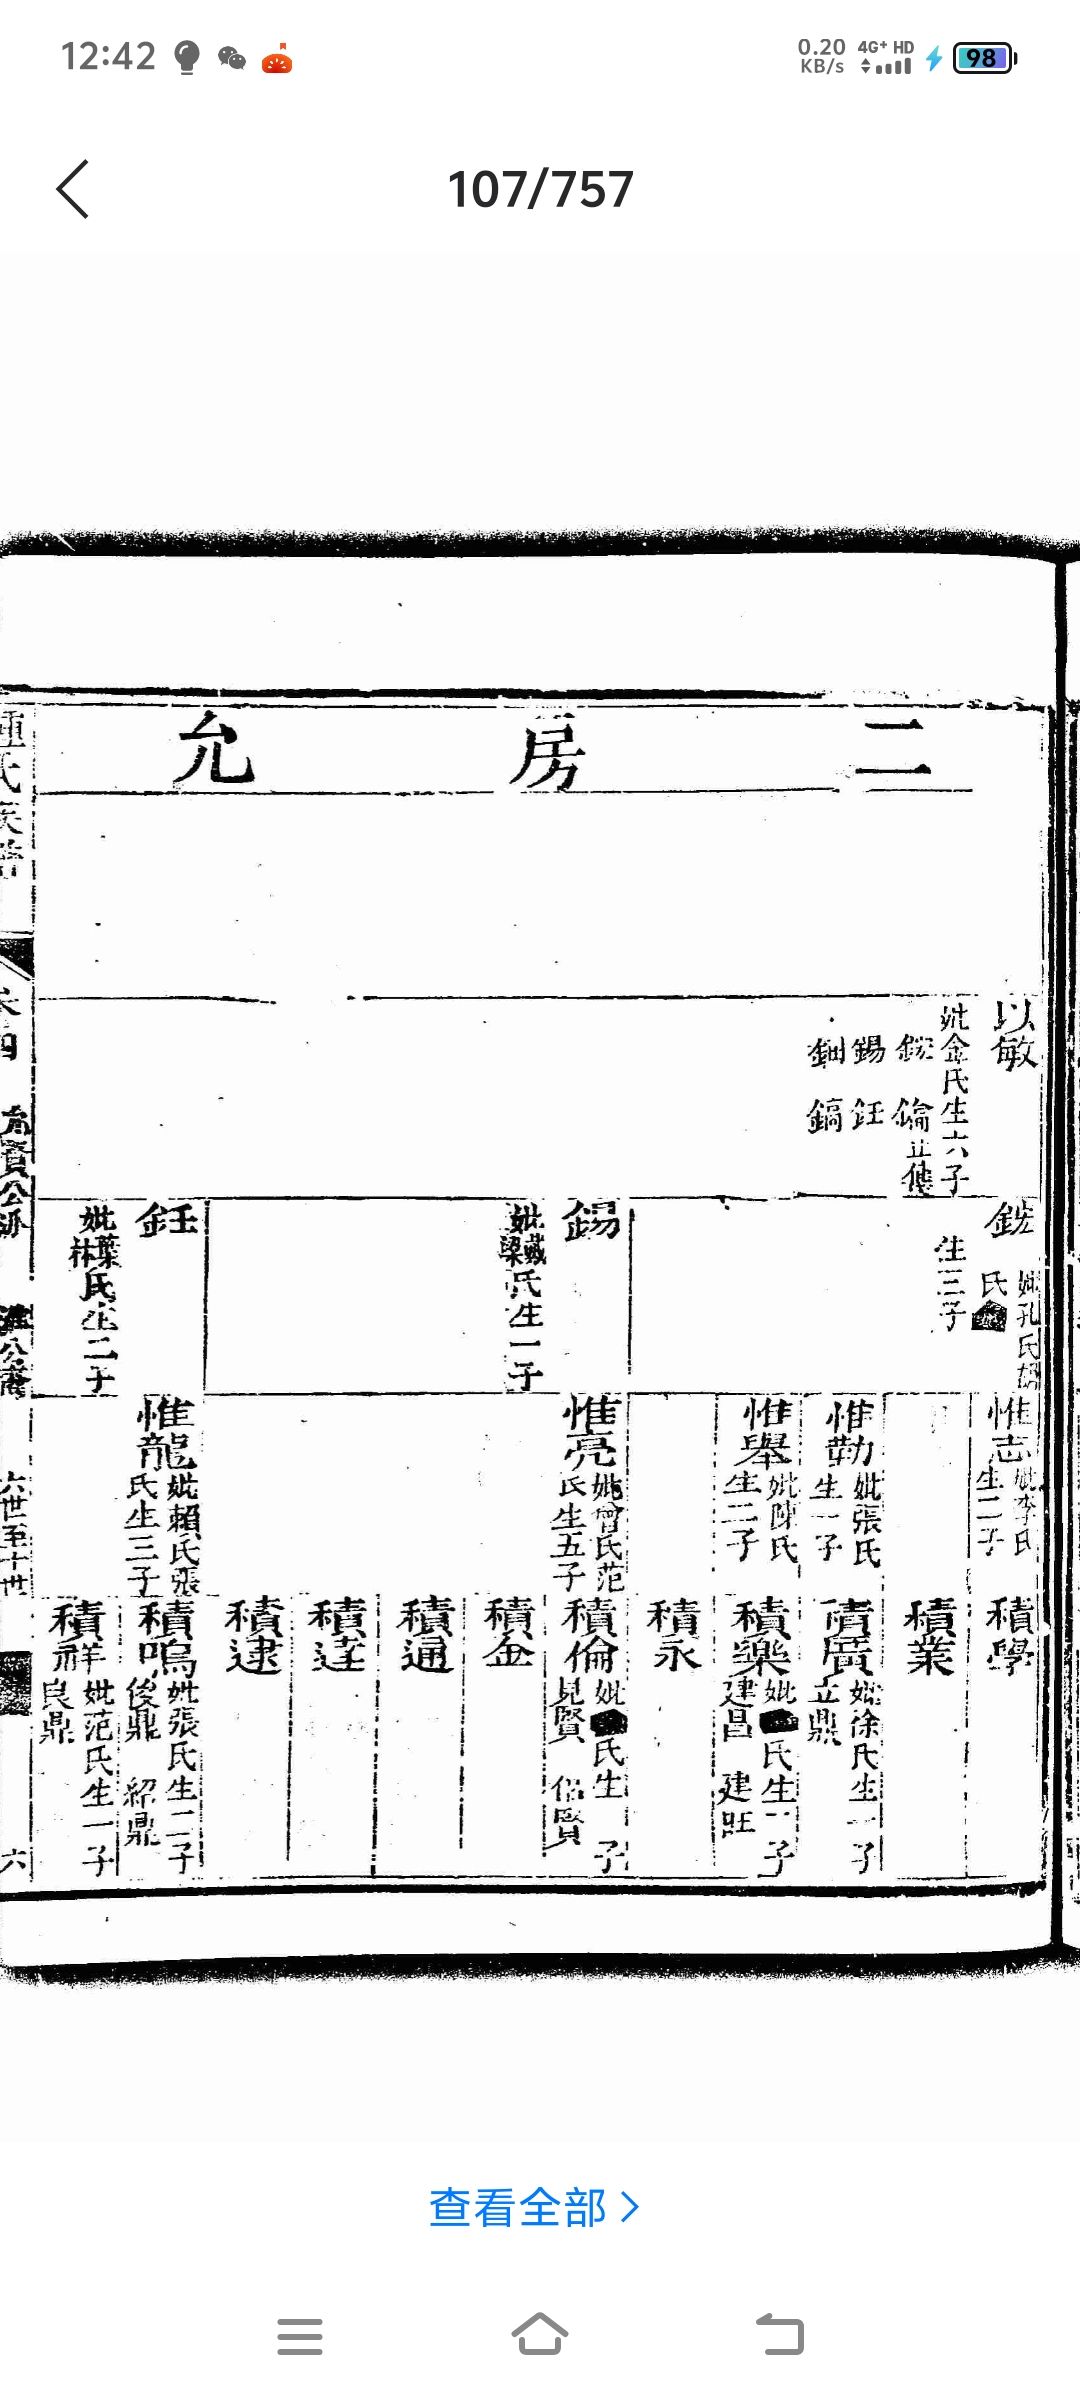 12:42
0.20 KB/s
4G+ HD
98
107/757
二房允
以敏
妣金氏生六子
錫
鈺
鎬
立傳
妣孔氏
氏
生三子
錫
妣戴梁氏生一子
鈺
妣葉林氏生二子
惟志
妣李氏
生二子
惟勤
妣張氏
生一子
惟舉
妣陳氏
生二子
惟亮
妣曾氏范
氏生五子
惟龍
妣賴氏張
氏生三子
積學
積業
積廣
妣徐氏生一子
立鼎
積樂
妣氏生二子
建昌 建旺
積永
積倫
妣氏生 子
見賢 侶賢
積金
積通
積達
積逮
積鳴
妣張氏生二子
俊鼎 紹鼎
積祥
妣范氏生一子
良鼎
氏族譜
六世至十世
六
查看全部 >